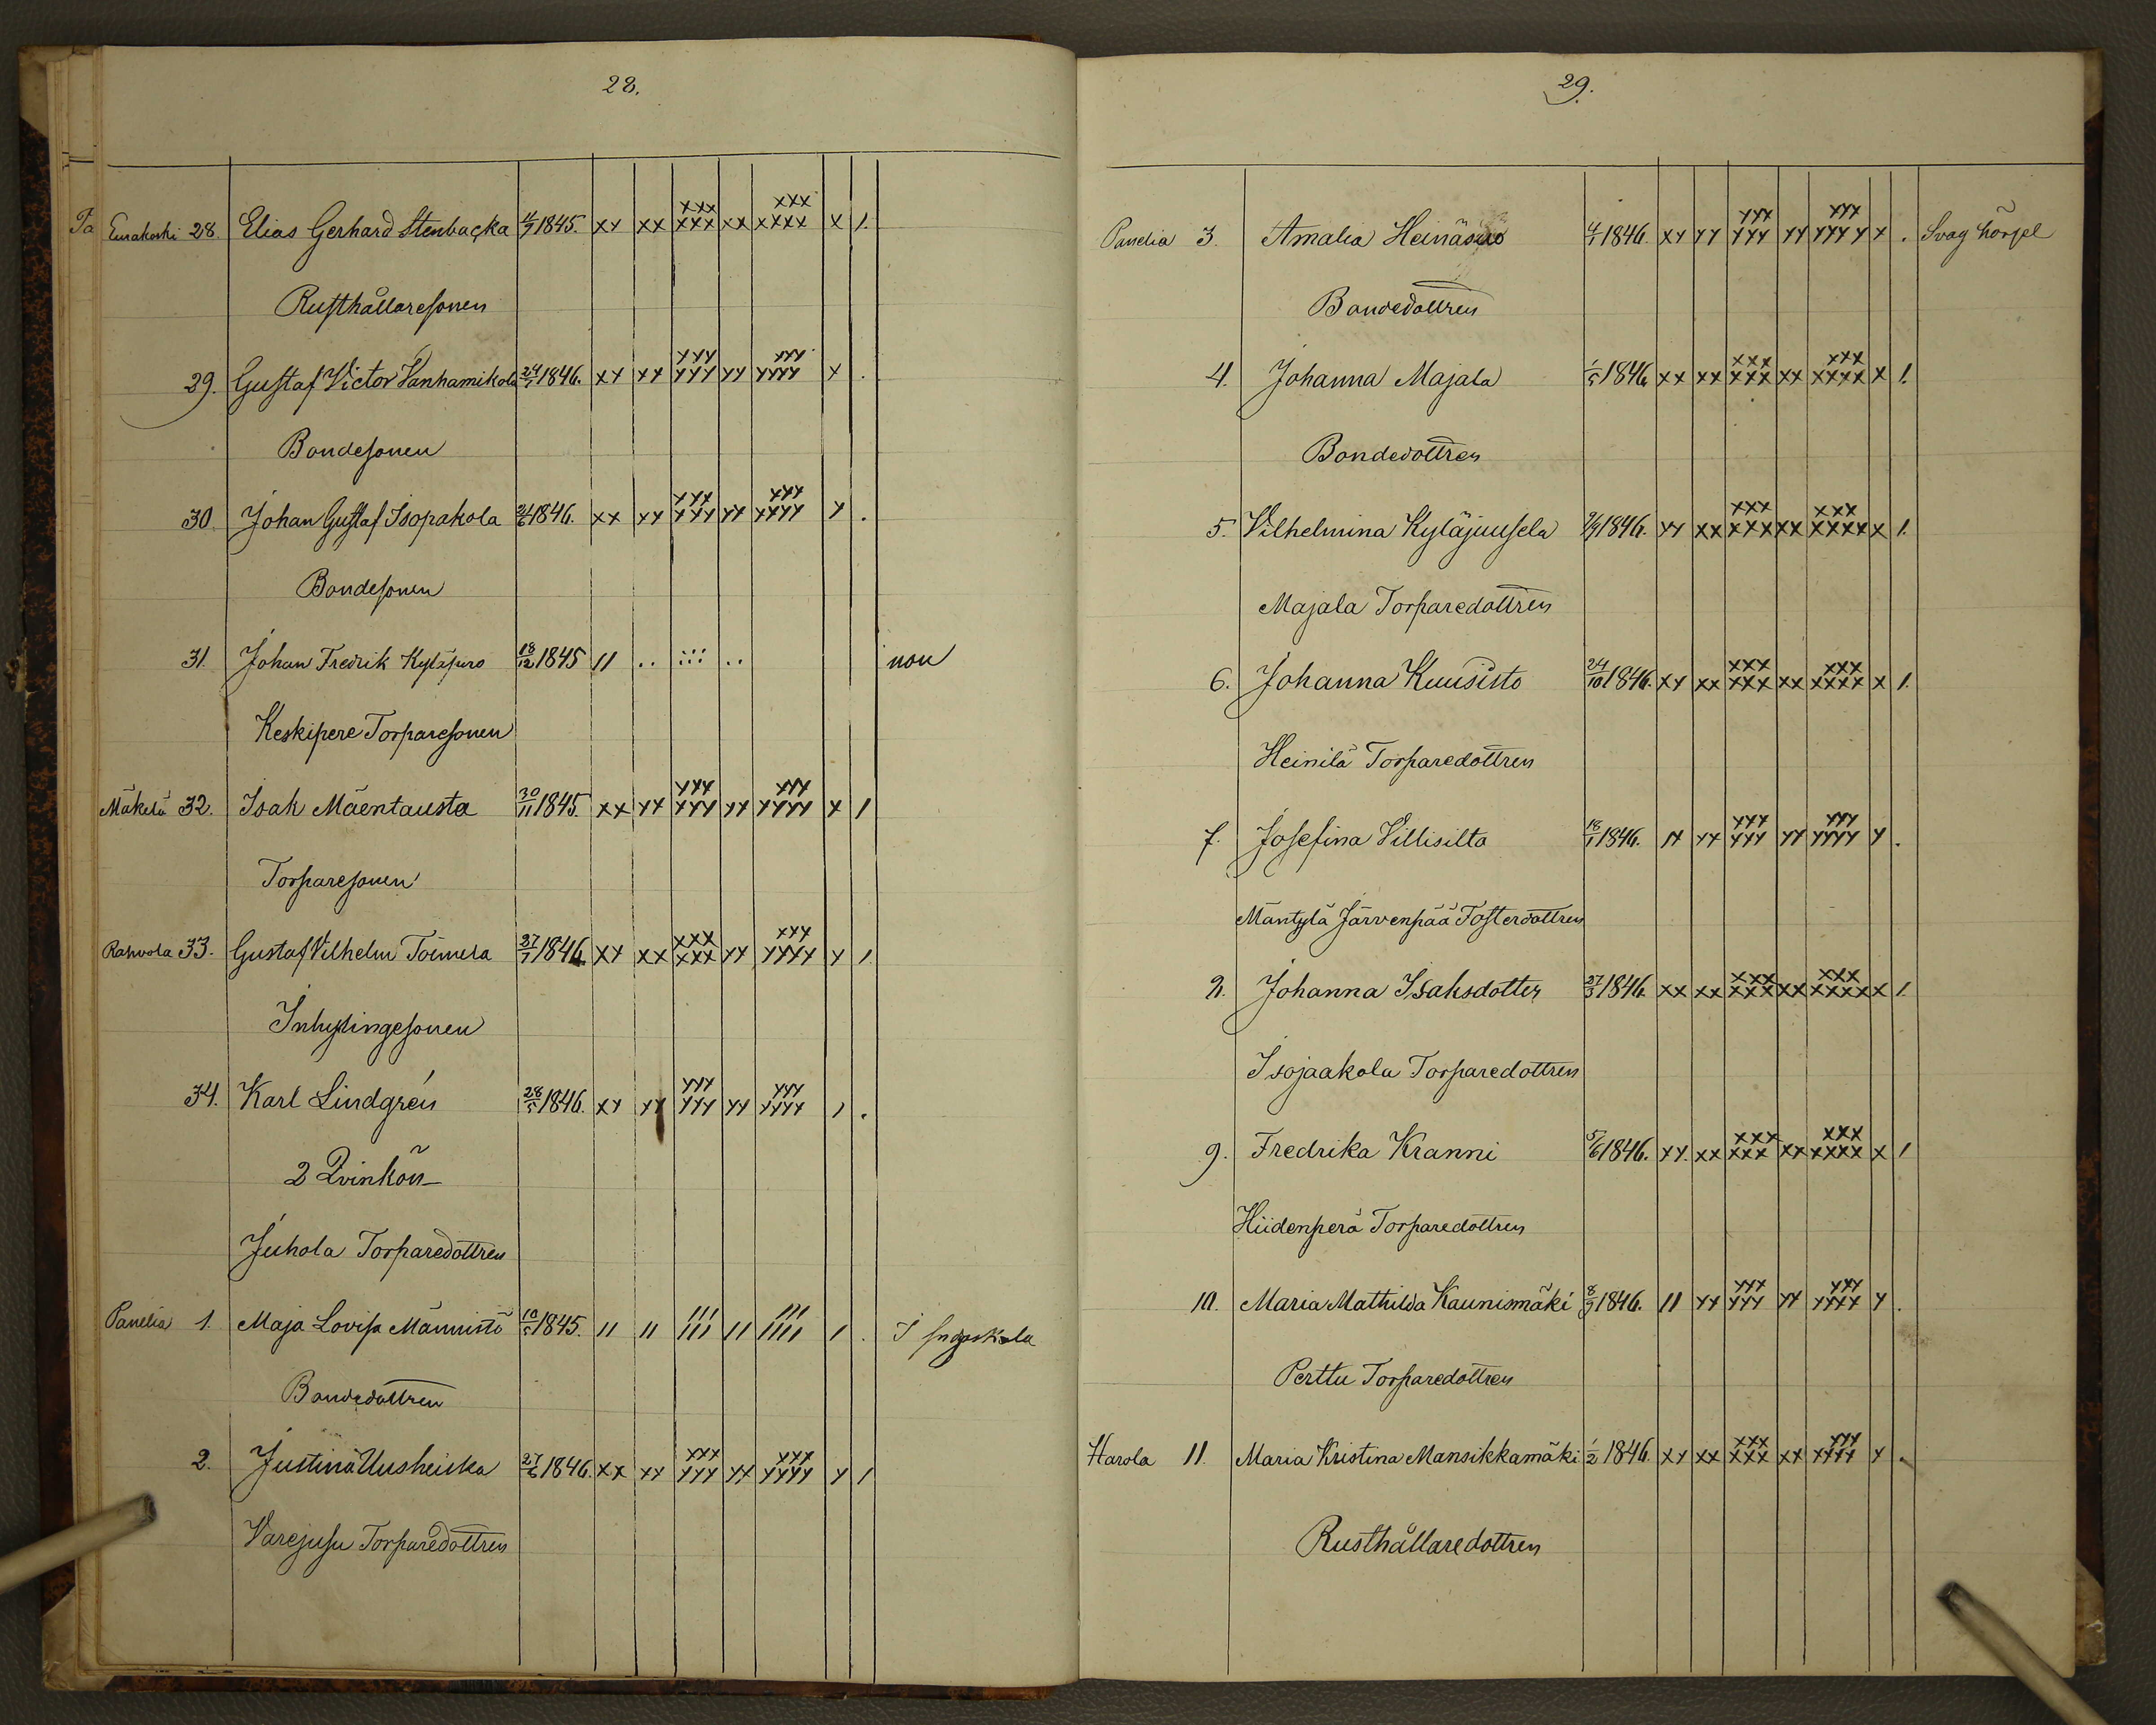 28.
Eurakoski 28. Elias Gerhard Stenbacka 4/7 1845. xx xx xxx xxx xx xxx xxxx x 1.
Rusthållaresonen
29. Gustaf Victor Vanhamikola 24/1 1846. xx xx xxx xxx xx xxx xxxx x .
Bondesonen
30. Johan Gustaf Isopakola 2/6 1846. xx xx xxx xxx xx xxx xxxx x .
Bondesonen
31. Johan Fredrik Kyläpuro 18/12 1845 11 .. ::: .. non
Keskipere Torparesonen
Mäkelä 32. Isak Mäentausta 30/11 1845. xx xx xxx xxx xx xxx xxxx x 1
Torparesonen
Rahvola 33. Gustaf Vilhelm Toimela 27/1 1846. xx xx xxx xxx xx xxx xxxx x 1
Inhysingesonen
34. Karl Lindgrén 28/5 1846. xx xx xxx xxx xx xxx xxxx 1 .
2 Qvinkön
Juhola Torparedottren
Panelia 1. Maja Lovisa Männistö 10/5 1845. 11 11 111 111 11 111 1111 1 . I
Bondedottren
2. Justina Uusheiska 27/6 1846. xx xx xxx xxx xx xxx xxxx x 1
Varejusu Torparedottren
29.
Panelia 3. Amalia Heinäsuo 4/1 1846. xx xx xxx xxx xx xxx xxxx x . Svag hörsel
Bondedottren
4. Johanna Majala 1/5 1846 xx xx xxx xxx xx xxx xxxx x 1.
Bondedottren
5. Vilhelmina Kyläjuusela 2/9 1846. xx xx xxx xxx xx xxx xxxx x 1.
Majala Torparedottren
6. Johanna Kuusisto 24/10 1846. xx xx xxx xxx xx xxx xxxx x 1.
Heinilä Torparedottren
7. Josefina Villisilta 18/1 1846. 1x xx xxx xxx xx xxx xxxx x .
Mäntylä Järvenpää Fosterdottren
8. Johanna Isaksdotter 27/3 1846. xx xx xxx xxx xx xxx xxxx x 1.
Isojaakola Torparedottren
9. Fredrika Kranni 5/6 1846. xx xx xxx xxx xx xxx xxxx x 1
Hiidenperä Torparedottren
10. Maria Mathilda Kaunismäki 8/9 1846. 11 xx xxx xxx xx xxx xxxx x .
Perttu Torparedottren
Harola 11. Maria Kristina Mansikkamäki 1/2 1846. xx xx xxx xxx xx xxx xxxx x .
Rusthållaredottren